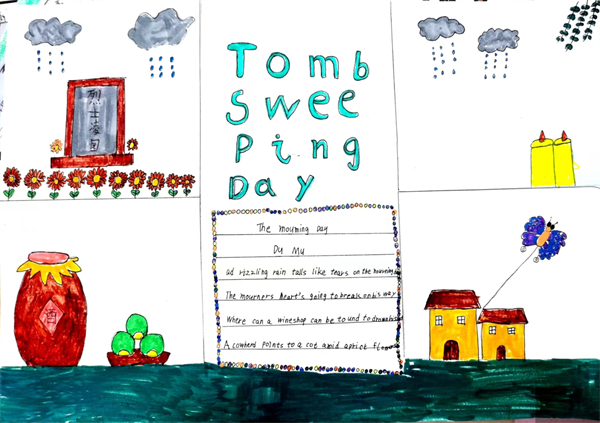 Tomb
Swee
Ping
Day
烈士
The mourning Day
Du Mu
ad rizzling rain talls like tears on the
The mourners heart's going to break on his way
Where can a wineshop can be tound to
A cowherd points to a cot amid aprict Flowers
酒